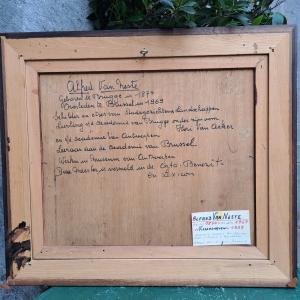 Alfred Van Neste
Geboren te Brugge in 1874
Overleden te Brussel in 1969
Schilder en etser van Stadsgezichten, Landschappen
Leerling v/d academie van Brugge onder zijn oom
Flori Van Acker
en v/d academie van Antwerpen
Leraar aan de academie van Brussel
Werken in museum van Antwerpen
Deze meester is vermeld in de Cato: Benezit
en Lexicon
ALFRED VAN NESTE
1874 1969